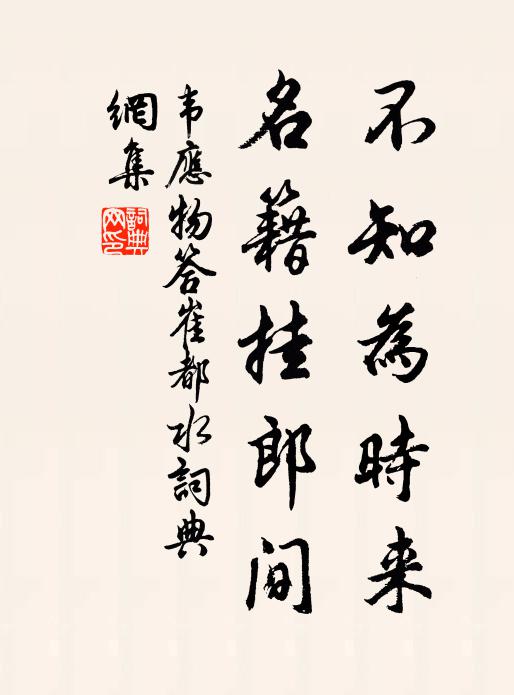 不知為時来
名籍挂郎間
韦應物答崔都水詞典
網集
詞典网印